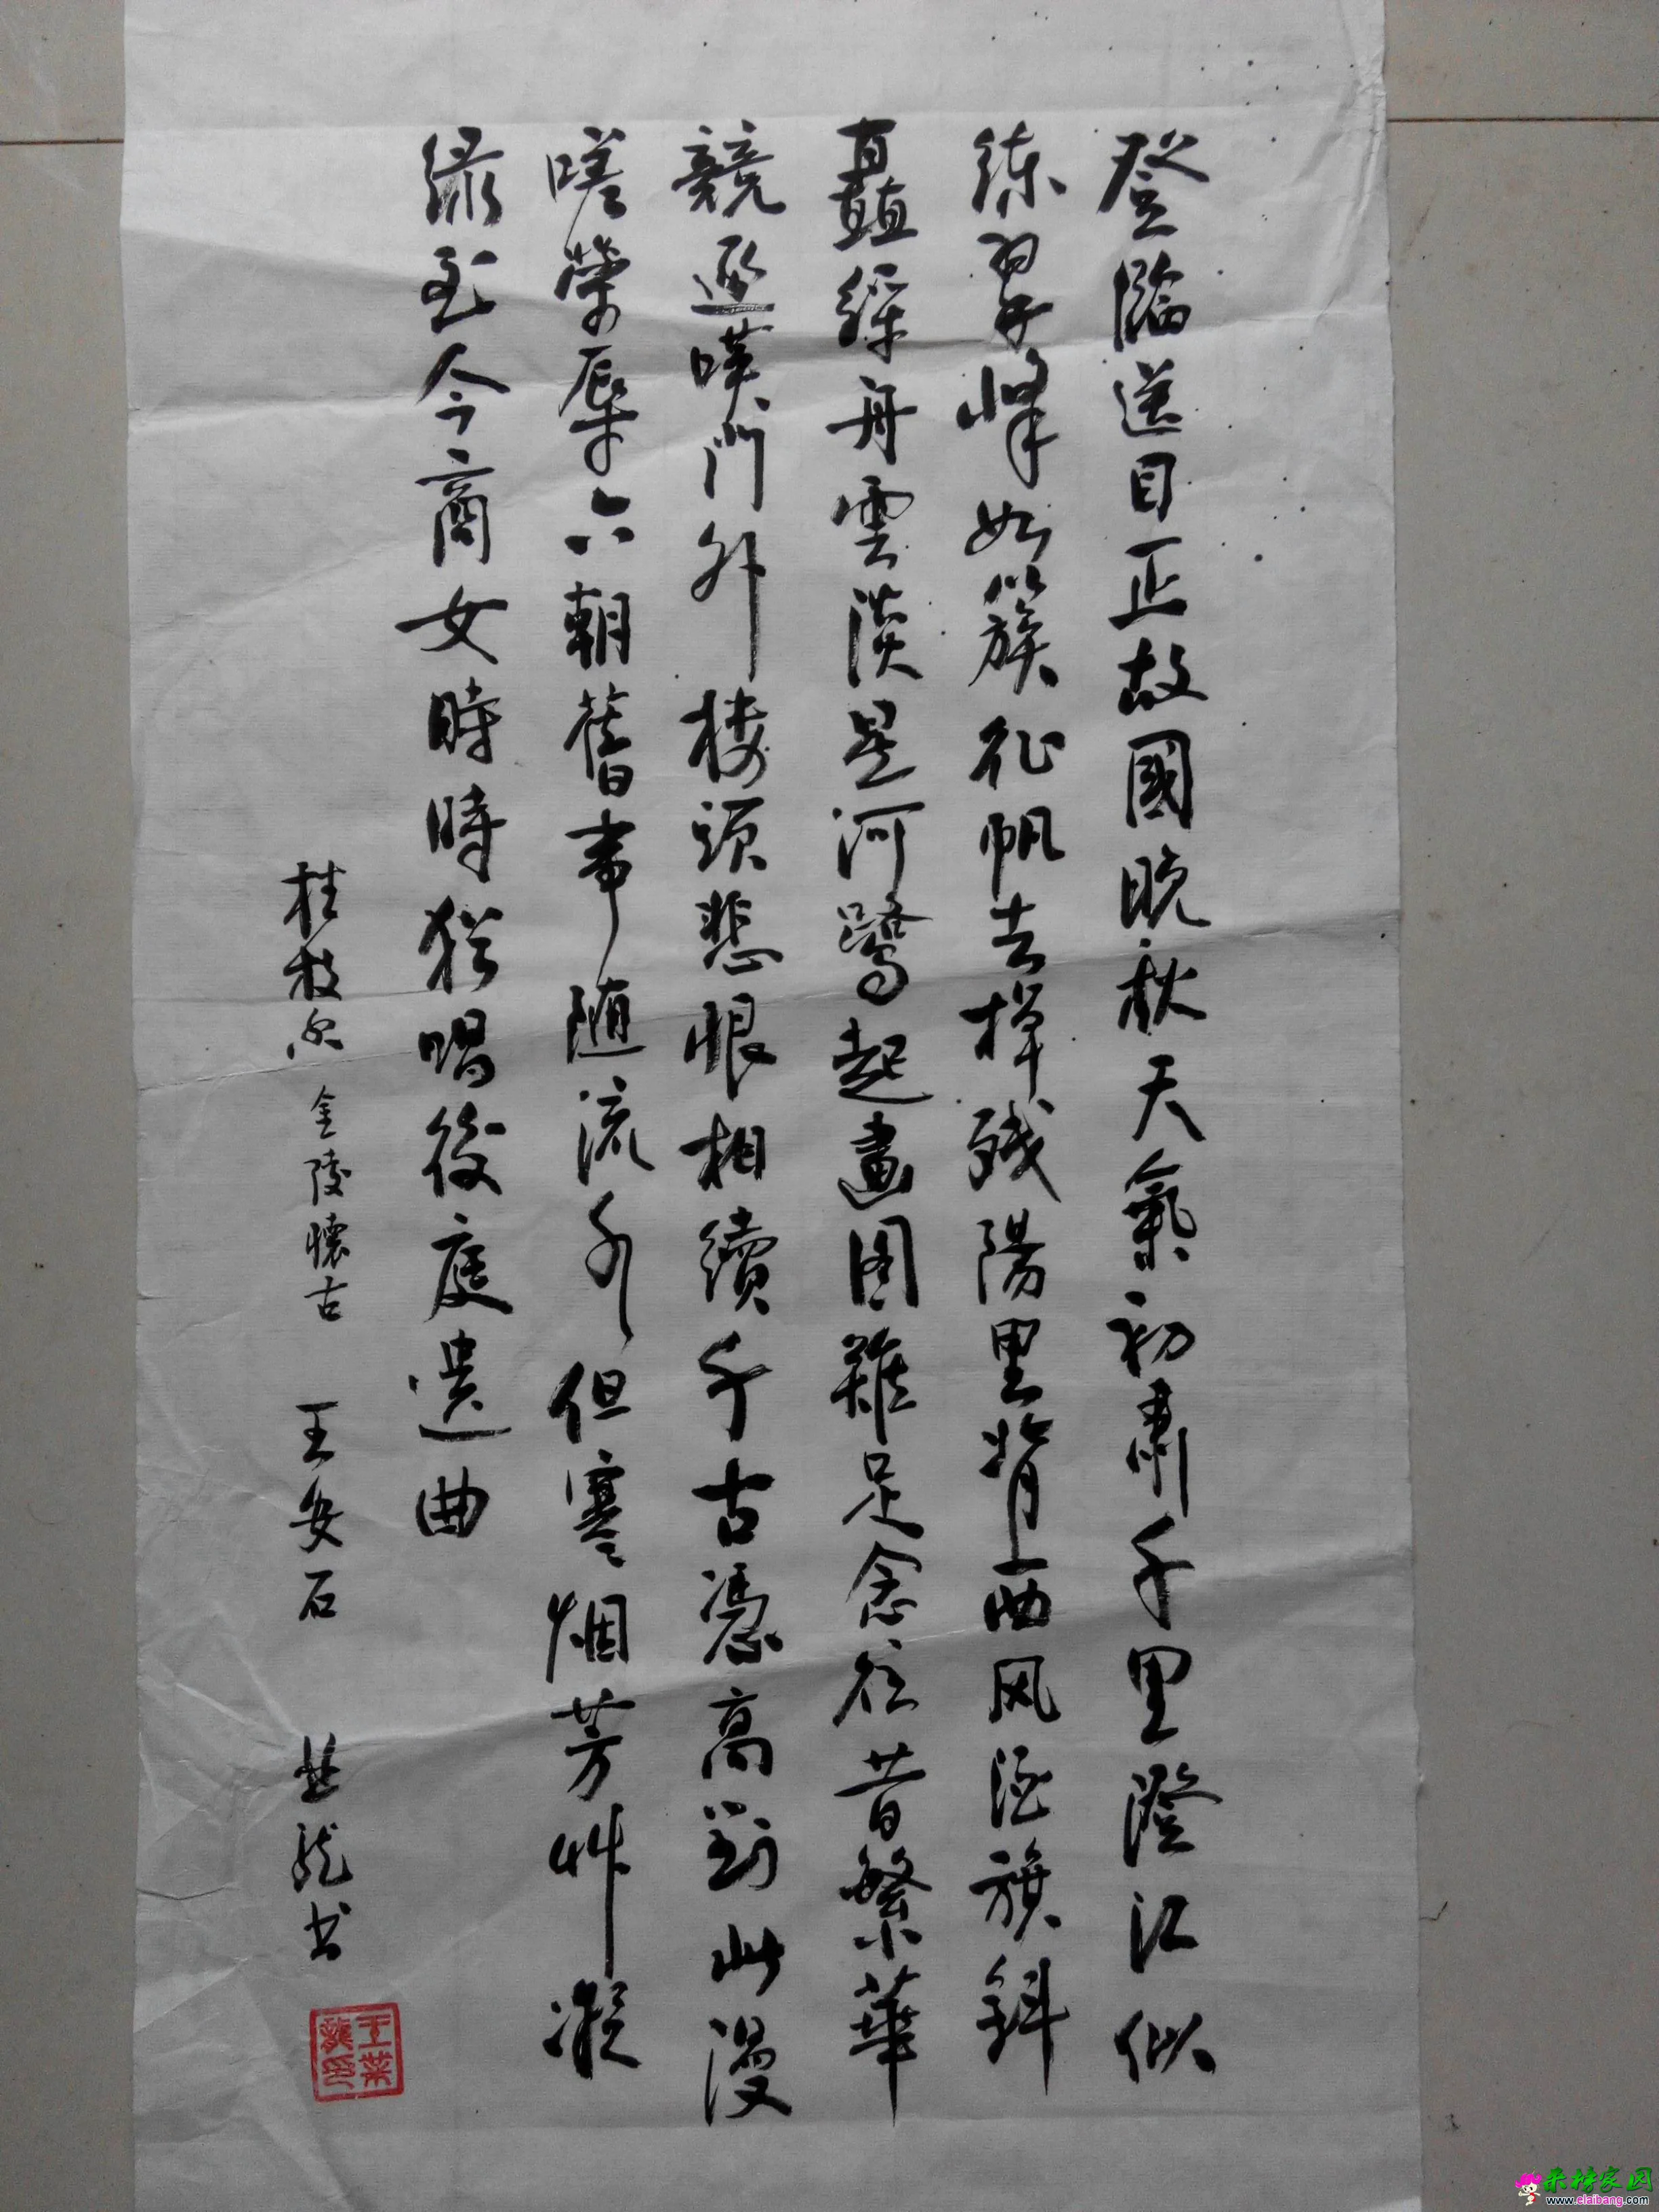 登臨送目正故國晚秋天氣初肅千里澄江似
練翠峰如簇征帆去棹残陽里背西风酒旗斜
矗綵舟雲淡星河鷺起畫图難足念往昔繁華
競逐嘆門外楼頭悲恨相續千古憑高對此漫
嗟榮辱六朝舊事随流水但寒烟芳艸凝
绿至今商女時時猶唱後庭遗曲
桂枝香 金陵懷古 王安石 业龍书
王業龍印
来榜家园
www.elaibang.com